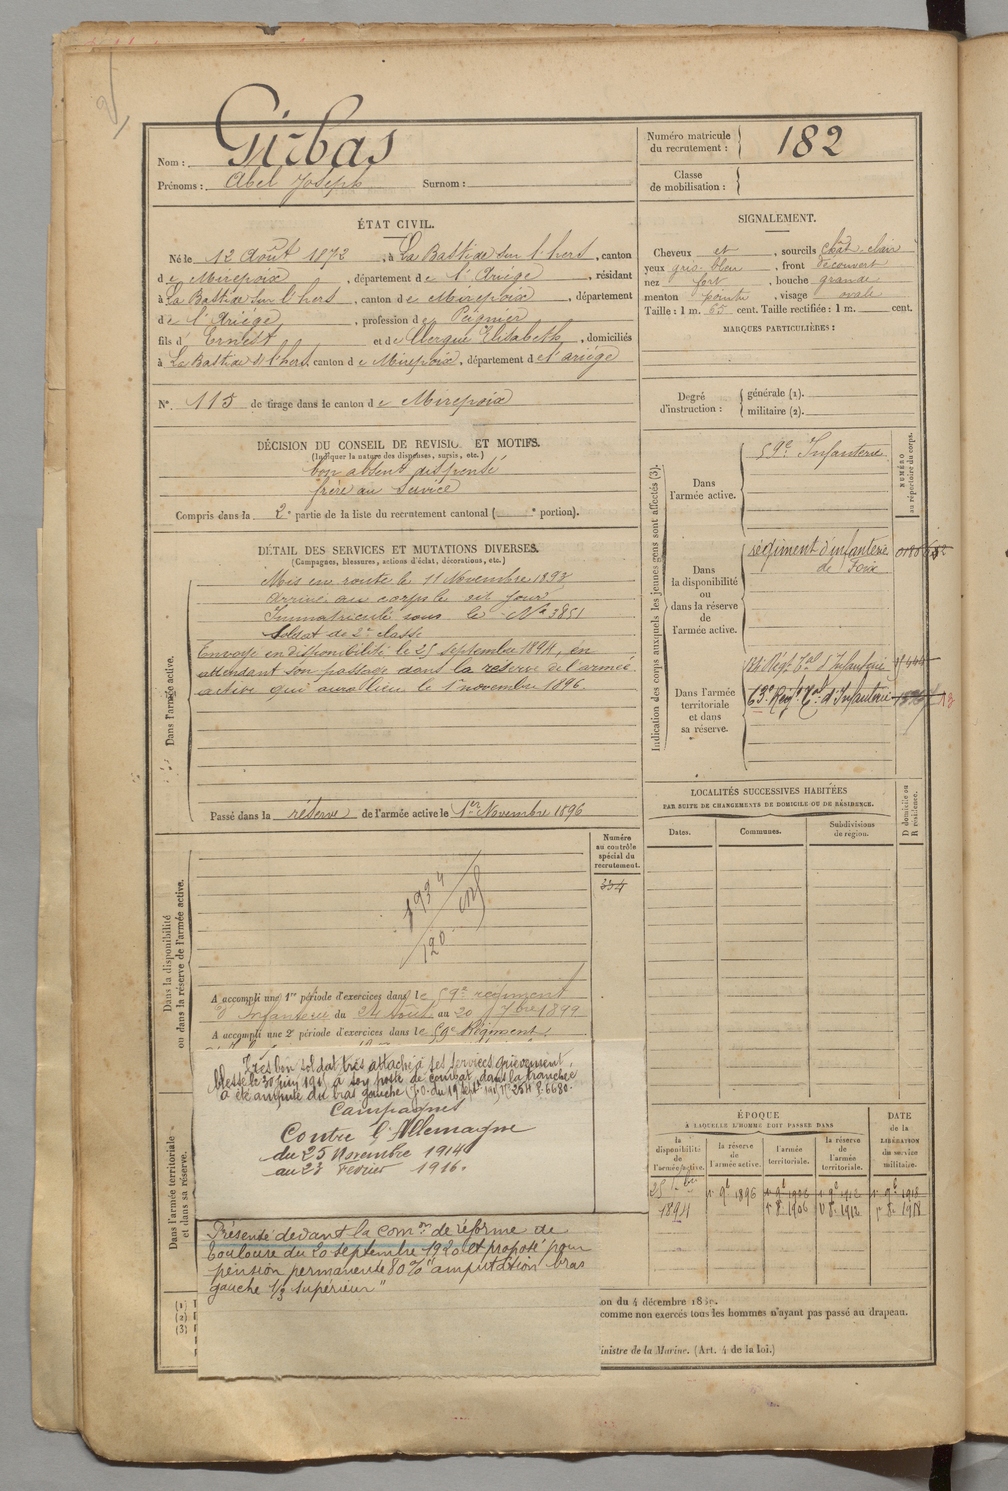 Nom : Girbas
Prénoms : Abel Joseph Surnom :
Numéro matricule du recrutement : 182
Classe de mobilisation :
ÉTAT CIVIL.
Né le 12 Août 1872, à La Bastide sur l'hers, canton
de Mirepoix, département de l'Ariège, résidant
à La Bastide sur l'hers, canton de Mirepoix, département
de l'Ariège, profession de Peignier
fils d' Ernest et de Clergue Elisabeth, domiciliés
à La Bastide s/ l'hers, canton de Mirepoix, département de l'ariège
N° 115 de tirage dans le canton de Mirepoix
SIGNALEMENT.
Cheveux et, sourcils chât. clair
yeux gris bleu, front découvert
nez fort, bouche grande
menton pointu, visage ovale
Taille : 1 m. 65 cent. Taille rectifiée : 1 m. cent.
MARQUES PARTICULIÈRES :
Degré d'instruction : générale (1).
militaire (2).
DÉCISION DU CONSEIL DE REVISIO ET MOTIFS.
(Indiquer la nature des dispenses, sursis, etc.)
bon absent dispensé
frère au service
Compris dans la 2e partie de la liste du recrutement cantonal ( e portion).
DÉTAIL DES SERVICES ET MUTATIONS DIVERSES.
(Campagnes, blessures, actions d'éclat, décorations, etc.)
Dans l'armée active.
Mis en route le 11 Novembre 1893
Arrivé au corps le dit jour
Immatriculé sous le N° 3851
Soldat de 2e classe
Envoyé en disponibilité le 25 septembre 1894, en
attendant son passage dans la réserve de l'armée
active qui aura lieu le 1 novembre 1896
Passé dans la réserve de l'armée active le 1er Novembre 1896
Indication des corps auxquels les jeunes gens sont affectés (3).
NUMÉRO au répertoire du corps.
Dans l'armée active.
59e Infanterie
Dans la disponibilité ou dans la réserve de l'armée active.
régiment d'infanterie
de Foix
Dans l'armée territoriale et dans sa réserve.
Régt Tal d'Infanterie
63e Régt Tal d'Infanterie
LOCALITÉS SUCCESSIVES HABITÉES
PAR SUITE DE CHANGEMENTS DE DOMICILE OU DE RÉSIDENCE.
Dates. Communes. Subdivisions de région. D domicile ou R résidence.
Dans la disponibilité ou dans la réserve de l'armée active.
Numéro au contrôle spécial du recrutement.
334
A accompli une 1re période d'exercices dans le 59e regiment
d'Infanterie du 24 Août au 20 7bre 1899
A accompli une 2e période d'exercices dans le 59e Régiment
Dans l'armée territoriale et dans sa réserve.
Très bon soldat très attaché à ses services grièvement
blessé le 30 juin 1915 à son poste de combat dans la tranchée
a été amputé du bras gauche
Campagnes
Contre l'Allemagne
du 25 Novembre 1914
au 23 Fevrier 1916.
Présenté devant la comon de réforme de
Toulouse du 20 septembre 1920 et proposé pour
pension permanente 80% "amputation bras
gauche 1/3 supérieur"
ÉPOQUE
À LAQUELLE L'HOMME DOIT PASSER DANS
la disponibilité de l'armée active. la réserve de l'armée active. l'armée territoriale. la réserve de l'armée territoriale.
DATE de la LIBÉRATION du service militaire.
25 7bre 1894 1896 1906 1912 1918
(1)
(2)
(3)
on du 4 décembre 18
comme non exercés tous les hommes n'ayant pas passé au drapeau.
inistre de la Marine. (Art. 4 de la loi.)